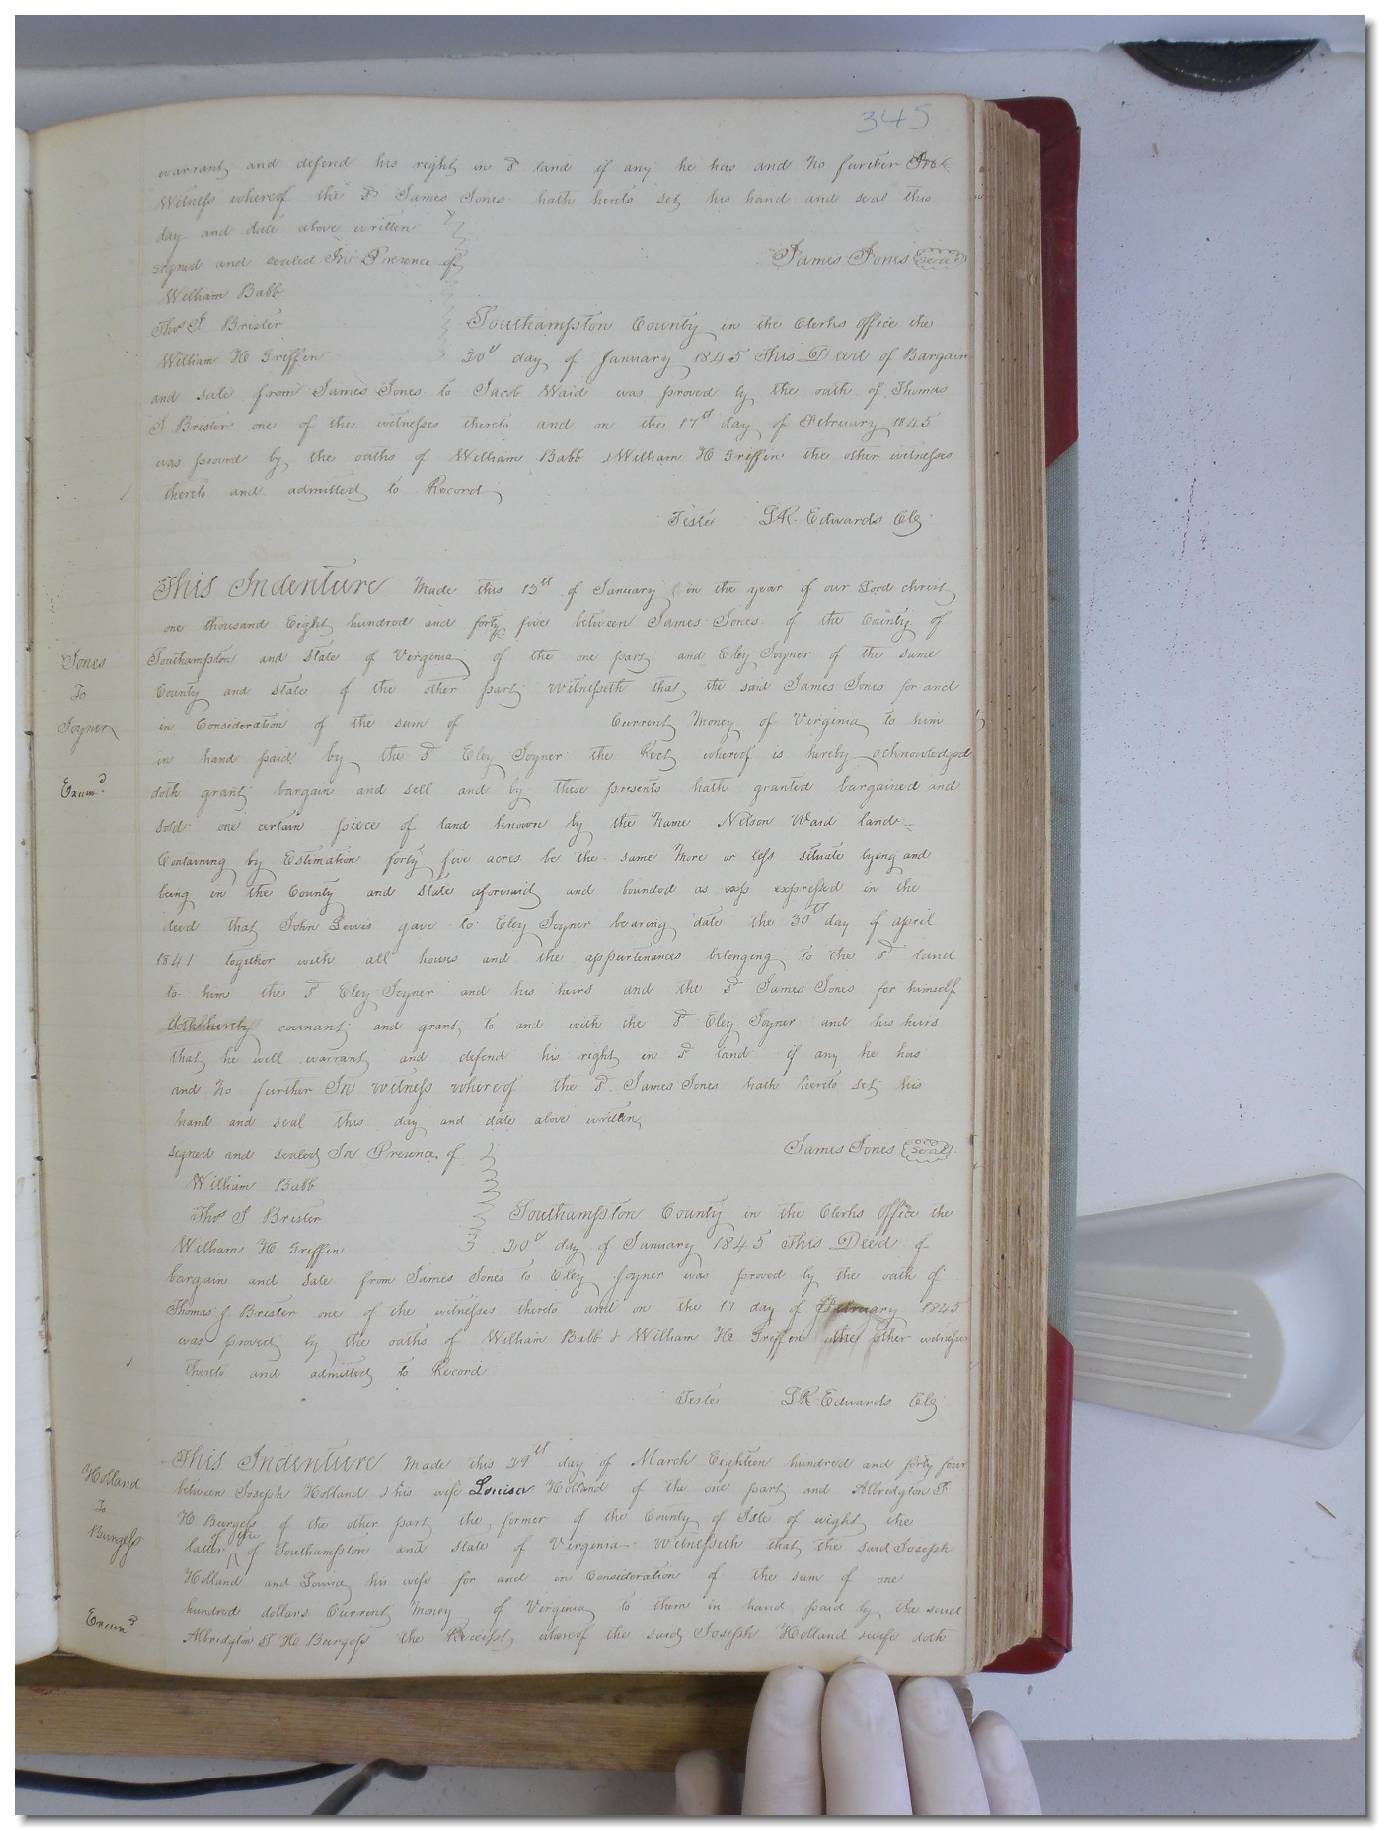 345
warrant and defend his right in sd land if any he has and No further In
Witness whereof the sd James Jones hath hereto set his hand and seal this
day and date above written
signed and sealed In Presence of
James Jones Seal
William Babb
Thos J Brister
Southampton County in the Clerks office the
William H Griffin
20th day of January 1845 This Deed of Bargain
and sale from James Jones to Jacob Waid was proved by the oath of Thomas
J Brister one of the witnesses thereto and on the 17th day of February 1845
was proved by the oaths of William Babb & William H Griffin the other witnesses
thereto and admitted to Record
Teste LR Edwards Clk
This Indenture Made this 13th of January in the year of our Lord christ
one thousand Eight hundred and forty five between James Jones of the County of
Jones
Southampton and State of Virginia of the one part and Eley Joyner of the same
To
County and state of the other part Witnesseth that the said James Jones for and
Joyner
in Consideration of the sum of Current Money of Virginia to him
in hand paid by the sd Eley Joyner the Rect whereof is hereby acknowledged
Examd
doth grant bargain and sell and by these presents hath granted bargained and
sold one certain piece of land known by the Name Nelson Waid land
Containing by Estimation forty five acres be the same More or less situate lying and
being in the County and State aforesaid and bounded as exp expressed in the
deed that John Lewis gave to Eley Joyner bearing date the 30th day of april
1841 together with all houses and the appurtenances belonging to the sd land
to him the sd Eley Joyner and his heirs and the sd James Jones for himself
doth hereby covenant and grant to and with the sd Eley Joyner and his heirs
that he will warrant and defend his right in sd land if any he has
and No further In witness whereof the sd James Jones hath hereto set his
hand and seal this day and date above written
signed and sealed In Presence of
James Jones Seal
William Babb
Thos J Brister
Southampton County in the Clerks office the
William H Griffin
20th day of January 1845 This Deed of
bargain and Sale from James Jones to Eley Joyner was proved by the oath of
Thomas J Brister one of the witnesses thereto and on the 17 day of February 1845
was proved by the oaths of William Babb & William H Griffin the other witnesses
thereto and admitted to Record
Teste LR Edwards Clk
This Indenture Made this 29th day of March Eighteen hundred and forty four
Holland
between Joseph Holland & his wife Louisa Holland of the one part and Albridgton S
To
H Burgess of the other part the former of the County of Isle of wight the
Burgess
latter of the of Southampton and state of Virginia Witnesseth that the said Joseph
Holland and Louisa his wife for and in Consideration of the sum of one
hundred dollars Current Money of Virginia to them in hand paid by the said
Examd
Albridgton S H Burgess the Receipt whereof the said Joseph Holland & wife doth